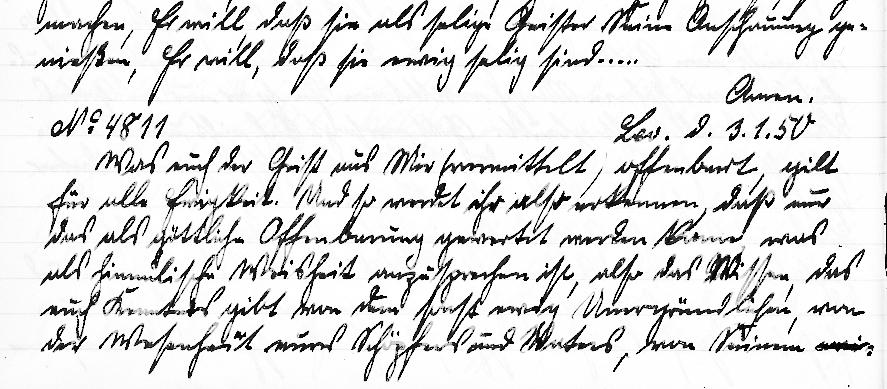 machen, Er will, daß sie als selige Geister Seine Anschauung ge-
nießen, Er will, daß sie ewig selig sind.....
Amen.
No 4811 Lev. d. 3.1.50
Was euch der Geist aus Mir (vermittelt) offenbart, gilt
für alle Ewigkeit. Und so werdet ihr also erkennen, daß nur
das als göttliche Offenbarung gewertet werden kann, was
als himmlische Weisheit anzusprechen ist, also das Wissen, das
euch Kenntnis gibt von dem sonst ewig Unergründlichen, von
der Wesenheit eures Schöpfers und Vaters, von Seinem